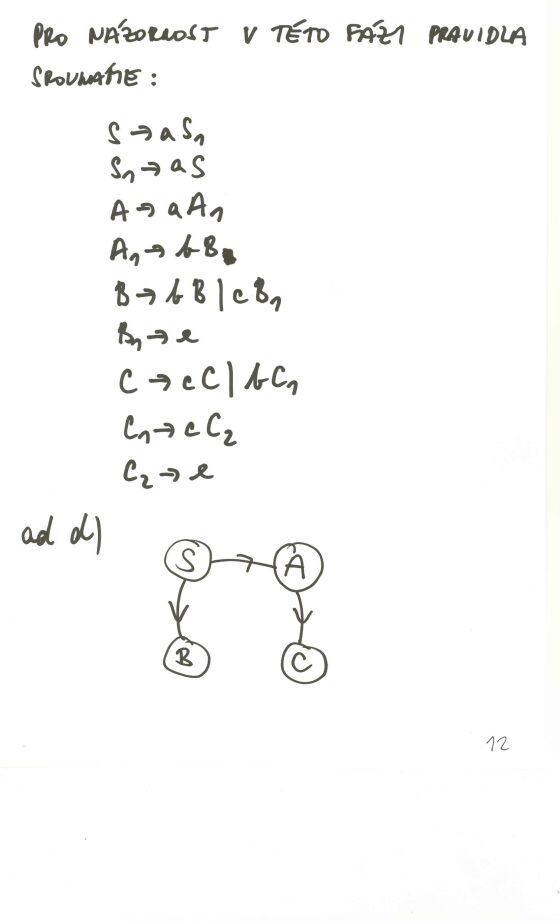 PRO NÁZORNOST V TÉTO FÁZI PRAVIDLA
SROVNÁME:
S → aS₁
S₁ → aS
A → aA₁
A₁ → bB
B → bB | cB₁
B₁ → e
C → cC | bC₁
C₁ → cC₂
C₂ → e
ad d)
S A
B C
12